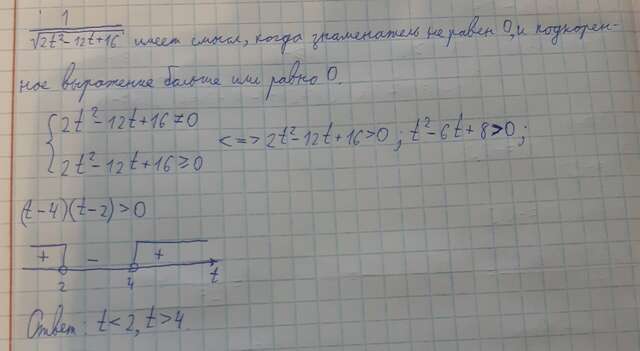 1/√(2t²-12t+16) имеет смысл, когда знаменатель не равен 0, и подкорен-
ное выражение больше или равно 0.
{2t²-12t+16≠0
{2t²-12t+16≥0 <=> 2t²-12t+16>0; t²-6t+8>0;
(t-4)(t-2)>0
+ - +
2 4 t
Ответ: t<2, t>4